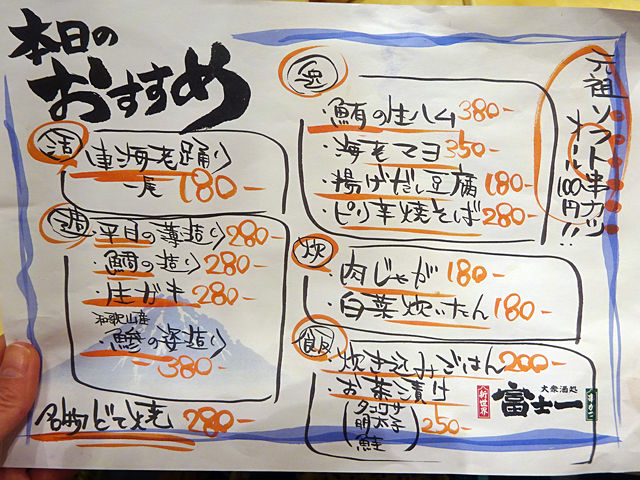 本日の
おすすめ
活
車海老踊り
一尾 180-
造
・平目の薄造り 280-
・鯛の造り 280-
・生ガキ 280-
和歌山産
・鯵の姿造り
380-
名物どて焼 280-
・鮪の生ハム 380-
・海老マヨ 350-
・揚げだし豆腐 180-
・ピリ辛焼そば 280-
炊
・肉じゃが 180-
・白菜炊いたん 180-
飯
・炊き込みごはん 200-
・お茶漬け
タコワサ
明太子
鮭
250-
元祖ソフト串カツ
オール100円!!
大衆酒処
新世界
富士一